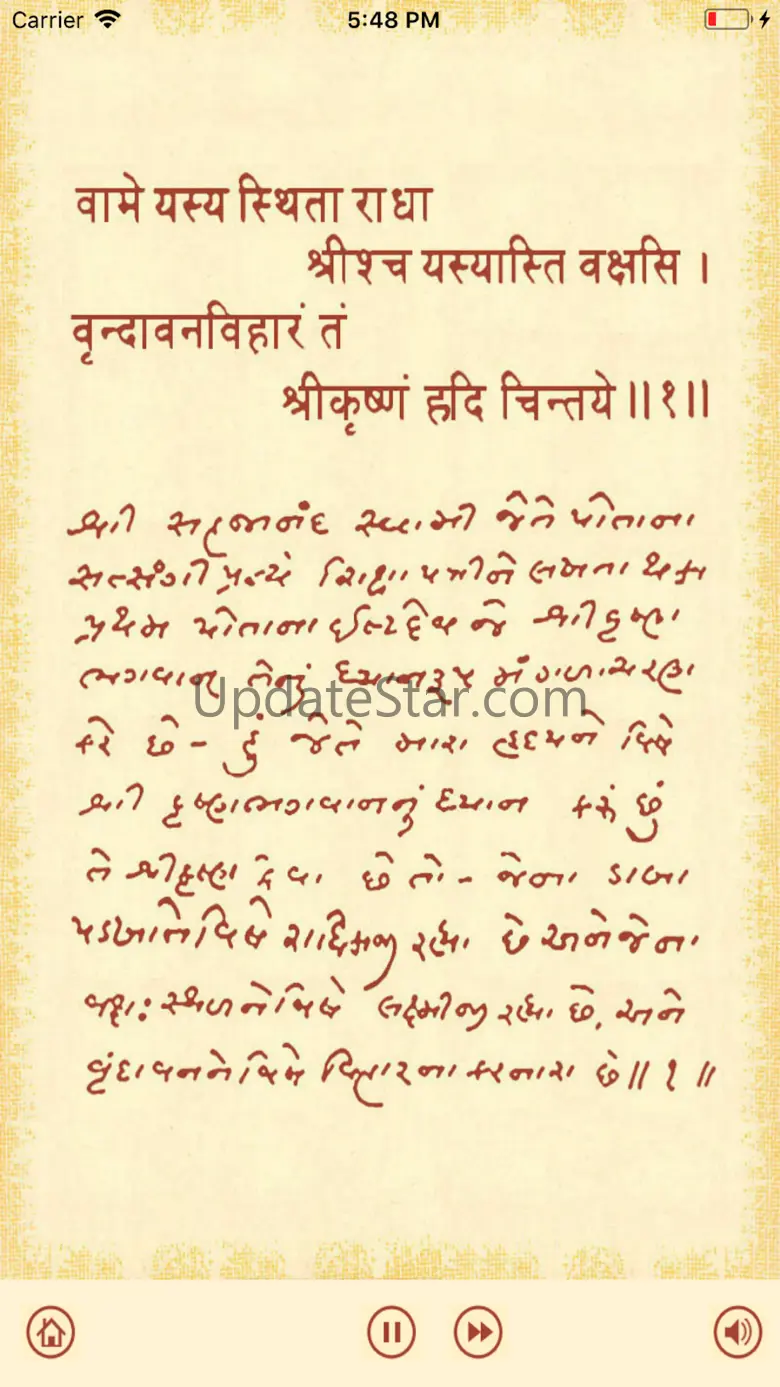 Carrier 5:48 PM
वामे यस्य स्थिता राधा
श्रीश्च यस्यास्ति वक्षसि ।
वृन्दावनविहारं तं
श्रीकृष्णं हृदि चिन्तये ॥१॥
શ્રી સહજાનંદ સ્વામી જેતે પોતાના
સત્સંગી પ્રત્યે શિક્ષાપત્રીને લખતા થકા
પ્રથમ પોતાના ઈષ્ટદેવ જે શ્રીકૃષ્ણ
ભગવાન્ તેનું ધ્યાનરૂપ મંગળાચરણ
UpdateStar.com
કરે છે - હું જેતે મારા હૃદયને વિષે
શ્રી કૃષ્ણભગવાનનું ધ્યાન કરું છું
તે શ્રીકૃષ્ણ કેવા છે તો - જેના ડાબા
પડખાને વિષે રાધિકાજી રહ્યા છે અને જેના
વક્ષઃસ્થળને વિષે લક્ષ્મીજી રહ્યા છે, અને
વૃંદાવનને વિષે વિહારના કરનારા છે ॥ ૧ ॥